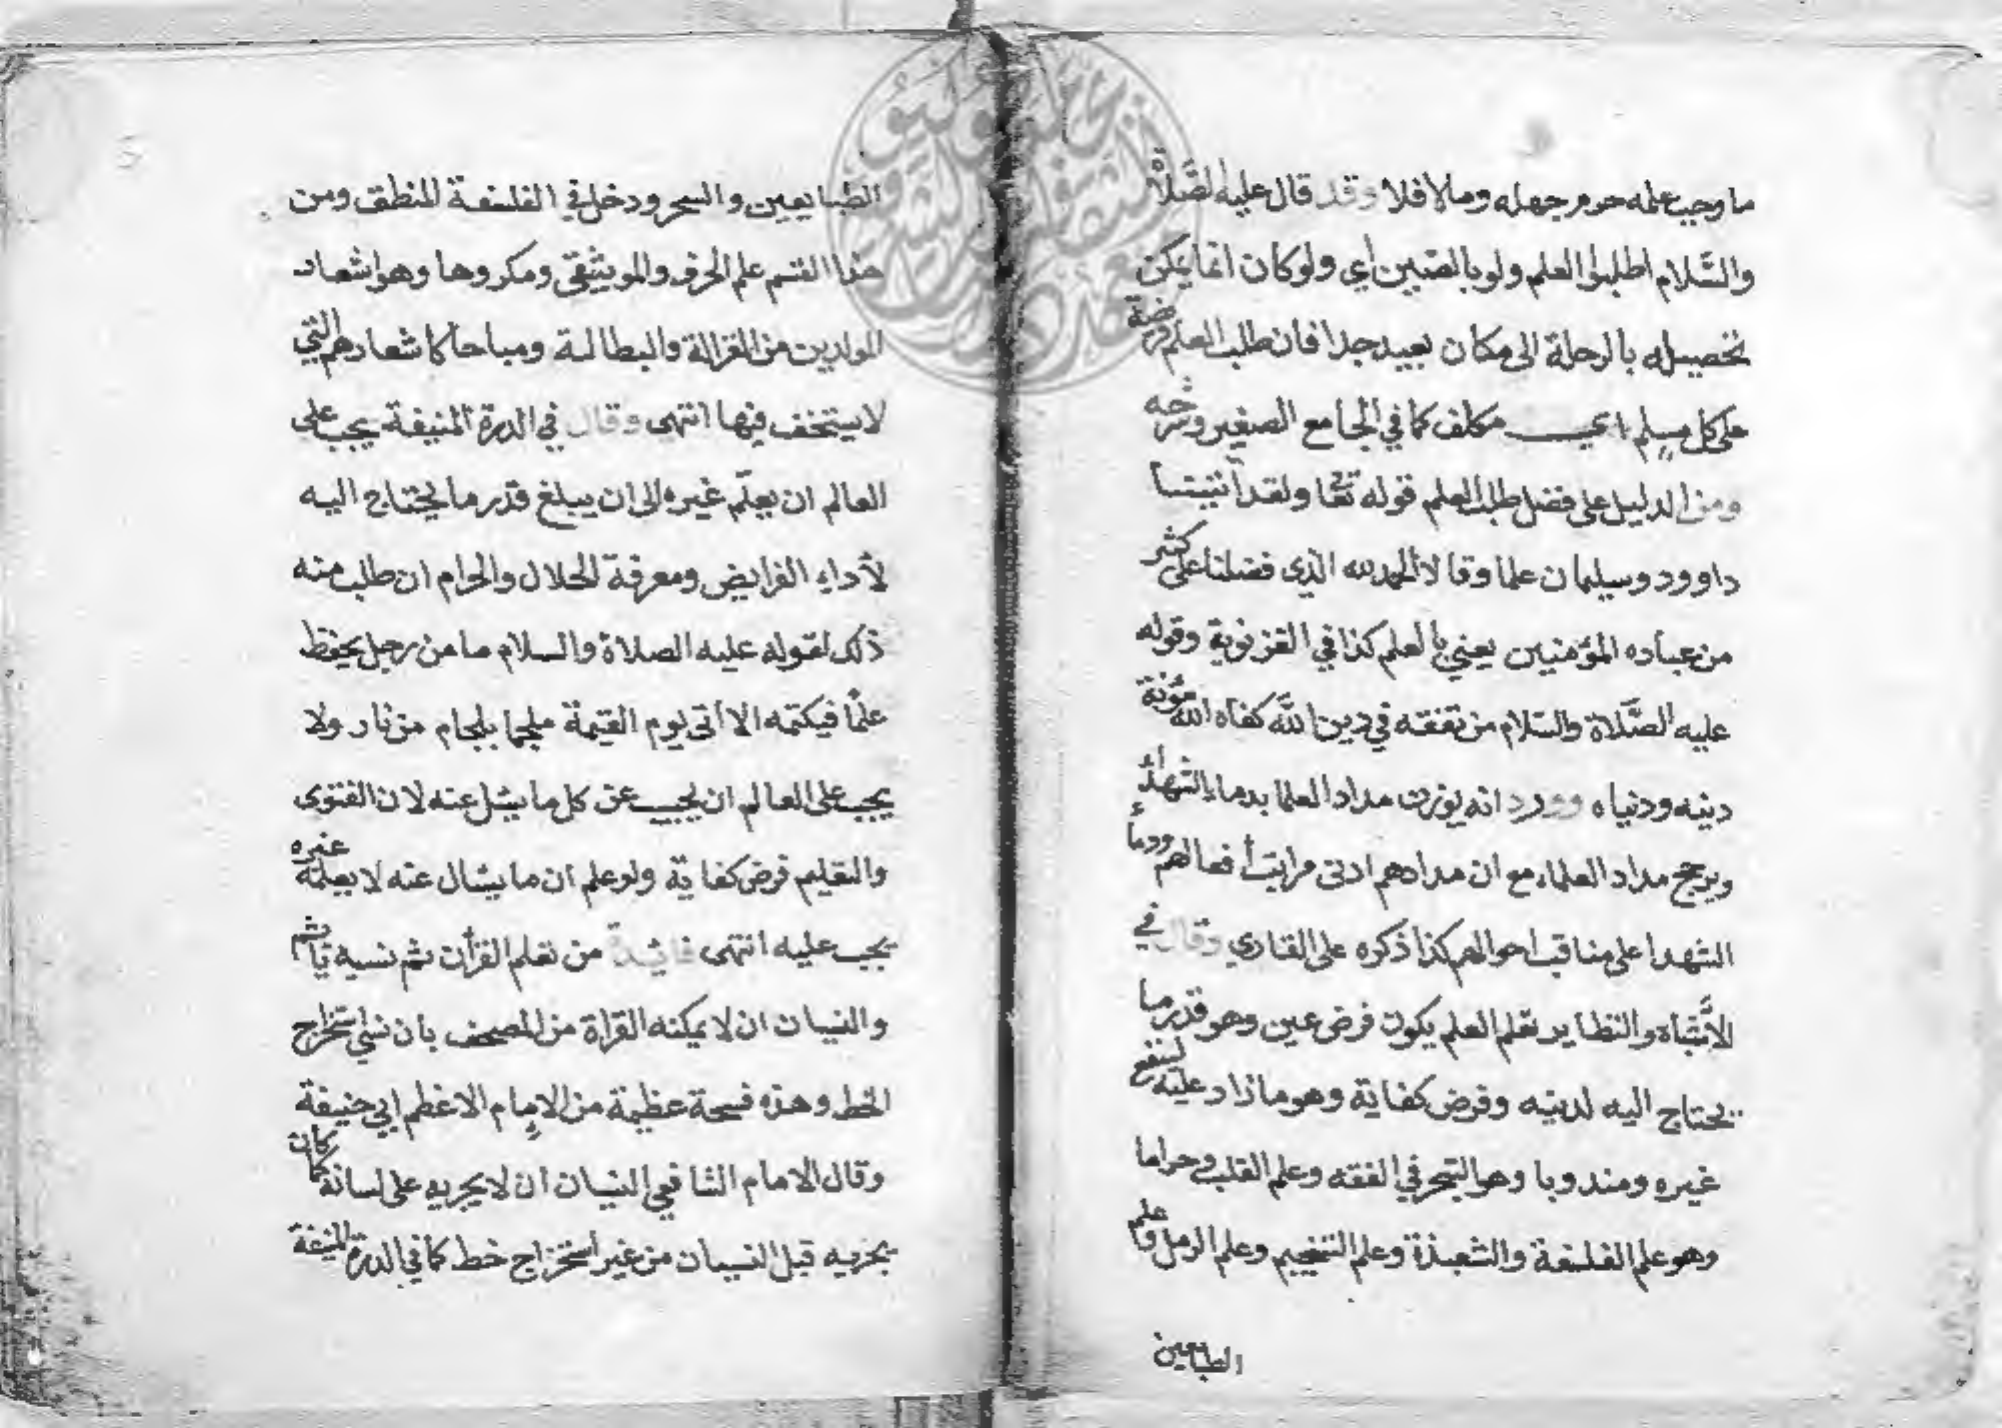 ما وجب علمه حرم جهله وما لا فلا وقد قال عليه الصَّلاة
والسَّلام اطلبوا العلم ولو بالصّين أي ولو كان انما يمكن
تحصيله بالرحلة الى مكان بعيد جدا فان طلب العلم فريضة
على كل مسلم اي مكلف كما في الجامع الصغير وشرحه
ومن الدليل على فضل طلب العلم قوله تعا ولقد آتيتنا
داوود وسليمان علما وقالا الحمد لله الذي فضلنا على كثير
من عباده المؤمنين يعني بالعلم كذا في القزنوية وقوله
عليه الصَّلاة والسّلام من تفقه في دين الله كفاه الله مؤنة
دينه ودنياه وورد انه يوزن مداد العلما بدماء الشهداء
ويرجح مداد العلماء مع ان مدادهم ادنى مراتب أفعالهم ودماء
الشهدا على مناقب احوالهم كذا ذكره على القاري وقال في
الاشباه والنظاير تعلم العلم يكون فرض عين وهو قدر ما
يحتاج اليه لدينه وفرض كفاية وهو ما زاد عليه لنفع
غيره ومندوبا وهو التبحر في الفقه وعلم القلب وحراما
وهو علم الفلسفة والشعبذة وعلم التنجيم وعلم الرمل وعلم
الطبايعين
الطبايعين والسحر ودخل في الفلسفة المنطق ومن
هذا القسم علم الحرف والمويثيقى ومكروها وهو اشعار
المولدين من الغزالة والبطالة ومباحا كاشعارهم التي
لا يستخف فيها انتهى وقال في الدرة المنيفة يجب على
العالم ان يعلّم غيره الى ان يبلغ قدر ما يحتاج اليه
لأداء الفرايض ومعرفة الحلال والحرام ان طلب منه
ذلك لقوله عليه الصلاة والسلام ما من رجل يحفظ
علمًا فيكتمه الا أتى يوم القيمة ملجما بلجام من نار ولا
يجب على العالم ان يجيب عن كل ما يسئل عنه لان الفتوى
والتعليم فرض كفاية ولو علم ان ما يسال عنه لا يعلمه غيره
يجب عليه انتهى فائدة من تعلم القرأن ثم نسيه ياثم
والنسيان ان لا يمكنه القراة من المصحف بان نسي استخراج
الخط وهذه فسحة عظيمة من الإمام الاعظم ابي حنيفة
وقال الامام الشافعي النسيان ان لا يجريه على لسانه كما كان
يجريه قبل النسيان من غير استخراج خط كما في الدرة المنيفة